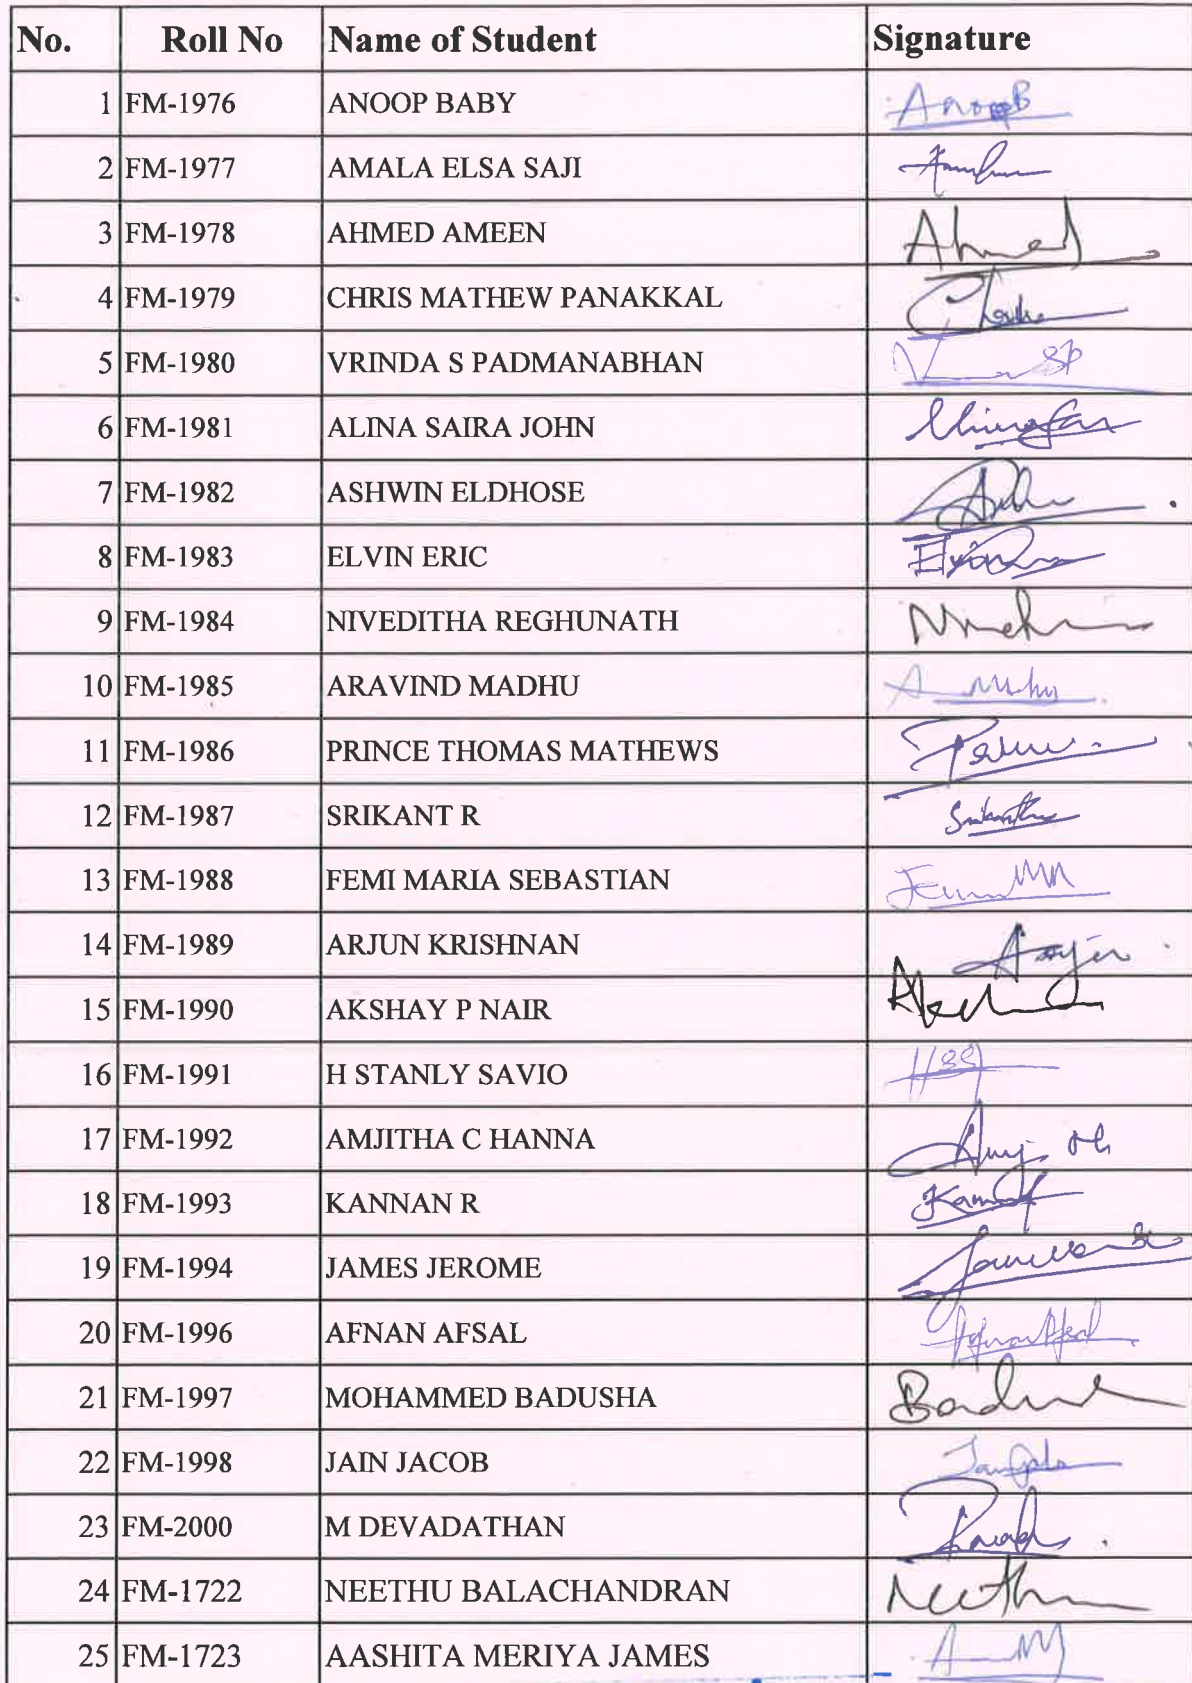 No. Roll No Name of Student Signature
1 FM-1976 ANOOP BABY AnoopB
2 FM-1977 AMALA ELSA SAJI
3 FM-1978 AHMED AMEEN Ahmed
4 FM-1979 CHRIS MATHEW PANAKKAL
5 FM-1980 VRINDA S PADMANABHAN
6 FM-1981 ALINA SAIRA JOHN
7 FM-1982 ASHWIN ELDHOSE
8 FM-1983 ELVIN ERIC
9 FM-1984 NIVEDITHA REGHUNATH
10 FM-1985 ARAVIND MADHU
11 FM-1986 PRINCE THOMAS MATHEWS
12 FM-1987 SRIKANT R
13 FM-1988 FEMI MARIA SEBASTIAN
14 FM-1989 ARJUN KRISHNAN
15 FM-1990 AKSHAY P NAIR
16 FM-1991 H STANLY SAVIO
17 FM-1992 AMJITHA C HANNA
18 FM-1993 KANNAN R
19 FM-1994 JAMES JEROME
20 FM-1996 AFNAN AFSAL
21 FM-1997 MOHAMMED BADUSHA
22 FM-1998 JAIN JACOB
23 FM-2000 M DEVADATHAN
24 FM-1722 NEETHU BALACHANDRAN
25 FM-1723 AASHITA MERIYA JAMES